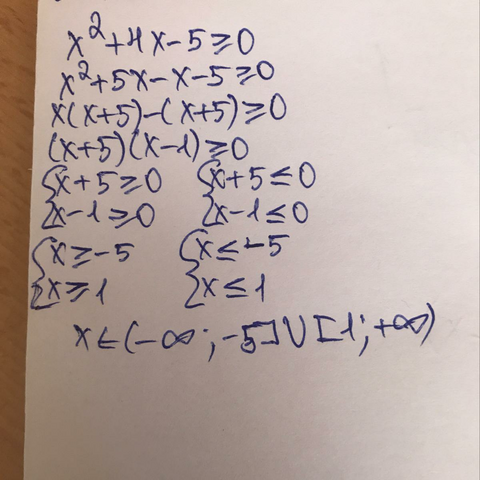 x²+4x-5≥0
x²+5x-x-5≥0
x(x+5)-(x+5)≥0
(x+5)(x-1)≥0
{x+5≥0 {x+5≤0
{x-1≥0 {x-1≤0
{x≥-5 {x≤-5
{x≥1 {x≤1
x∈(-∞;-5]∪[1;+∞)